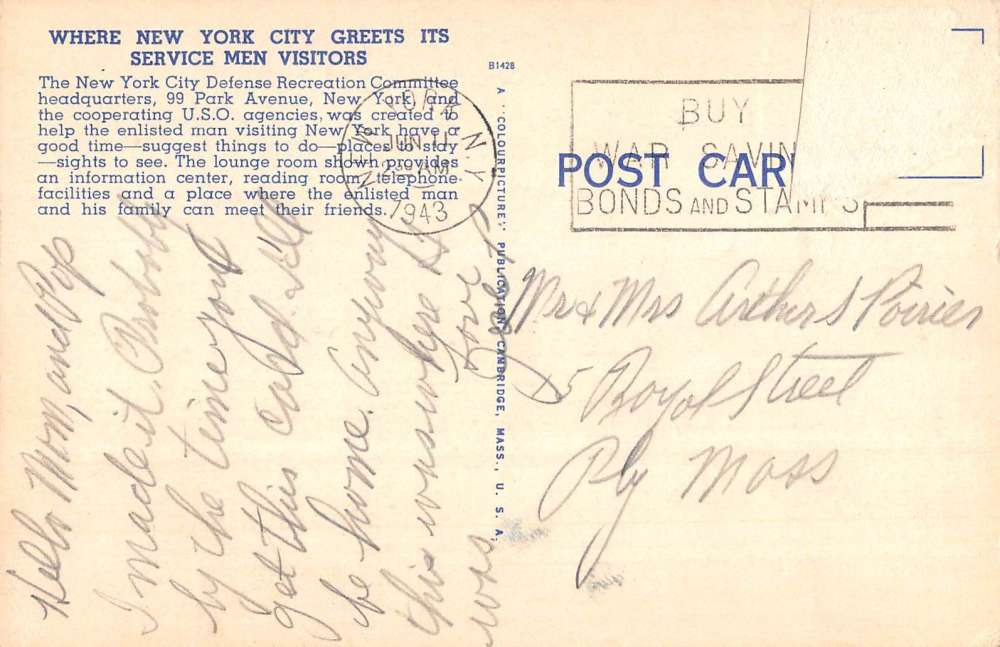 WHERE NEW YORK CITY GREETS ITS
SERVICE MEN VISITORS
The New York City Defense Recreation Committee
headquarters, 99 Park Avenue, New York and
the cooperating U.S.O. agencies, was created to
help the enlisted man visiting New York have a
good time—suggest things to do—places to stay
—sights to see. The lounge room shown provides
an information center, reading room, telephone
facilities and a place where the enlisted man
and his family can meet their friends.
B1428
A "COLOURPICTURE" PUBLICATION CAMBRIDGE, MASS., U. S. A.
NEW YORK N.Y
JUN 11
AM
1943
BUY
WAR SAVIN
BONDS AND STAMPS
POST CAR
Hello Mom, and Pop
I made it. Probobly
by the time you'd
get this card I'll
be home. Anyway
this was where I
was
Love
Mr & Mrs Arthur S Poirier
15 Royal Street
Ply Mass